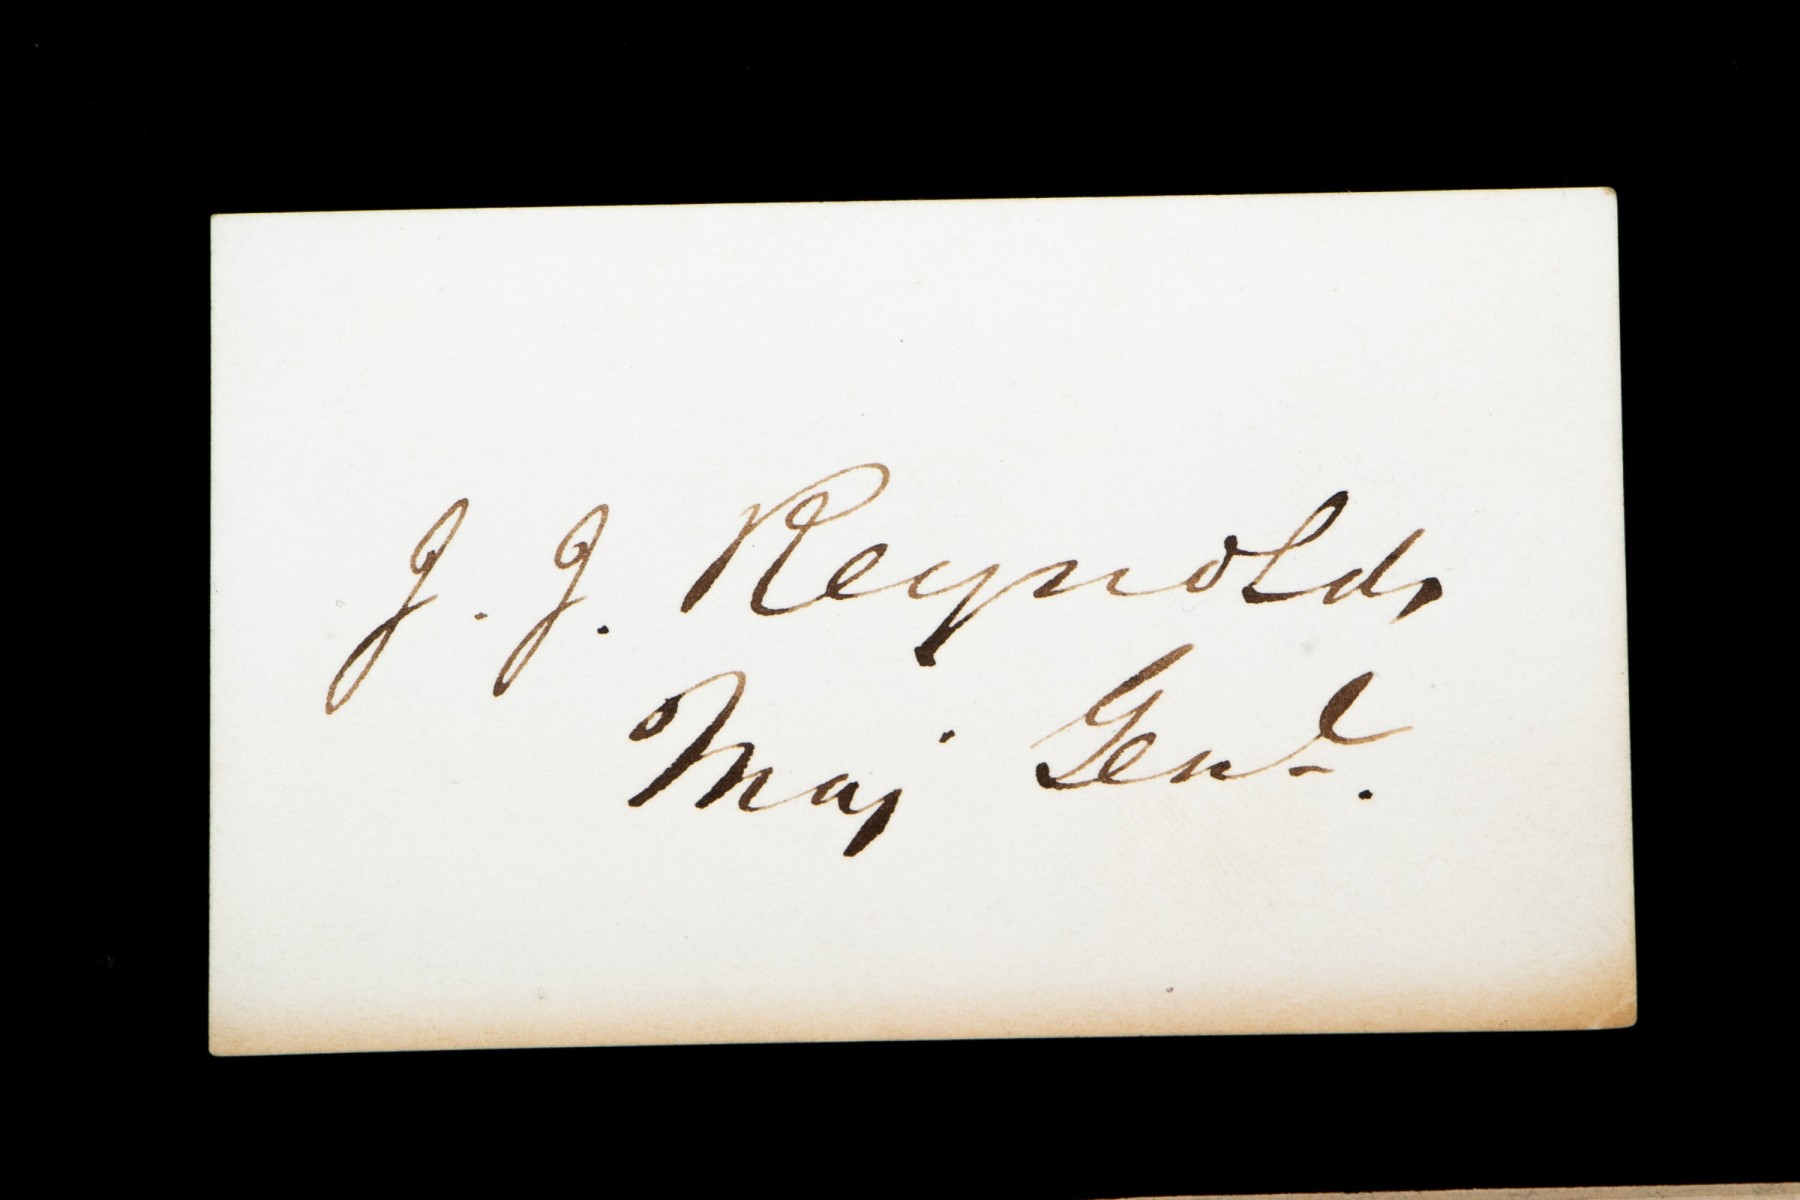 J. J. Reynolds
Maj Genl.